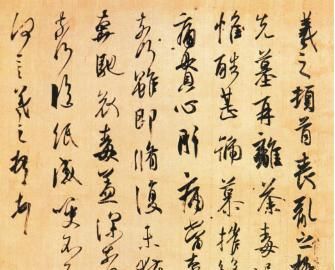 羲之頓首喪亂之極
先墓再離荼毒
惟酷甚號慕摧
痛貫心肝痛當
奈何雖即脩復未
奔馳哀毒益深
奈何臨紙感哽不
何言羲之頓首